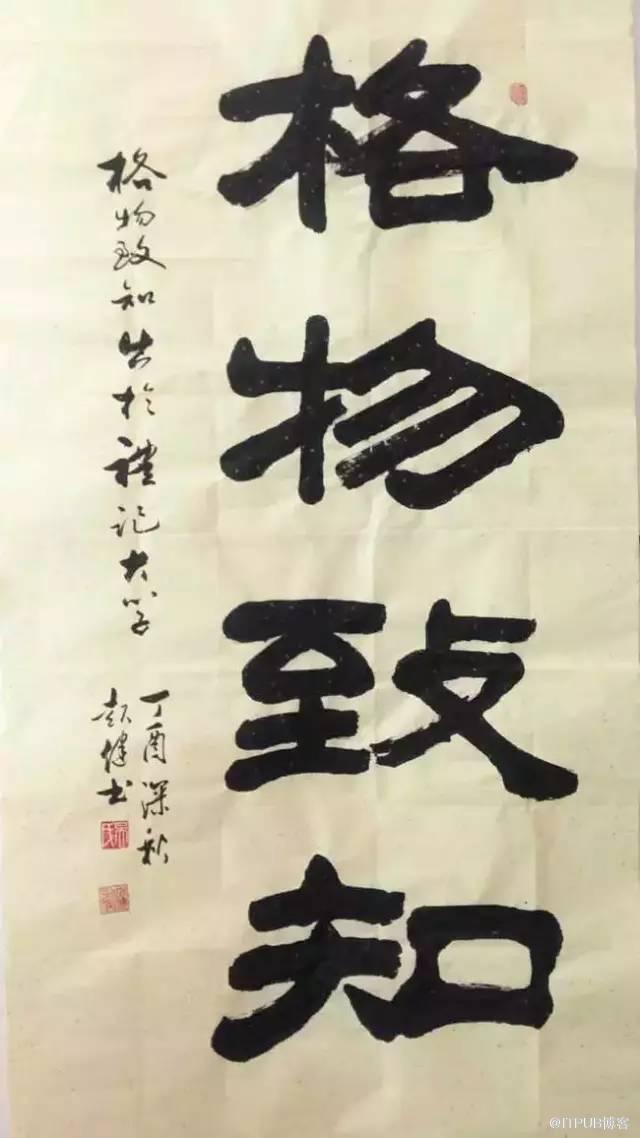 格物致知
格物致知出於禮記大学
丁酉深秋
健书
@ITPUB博客